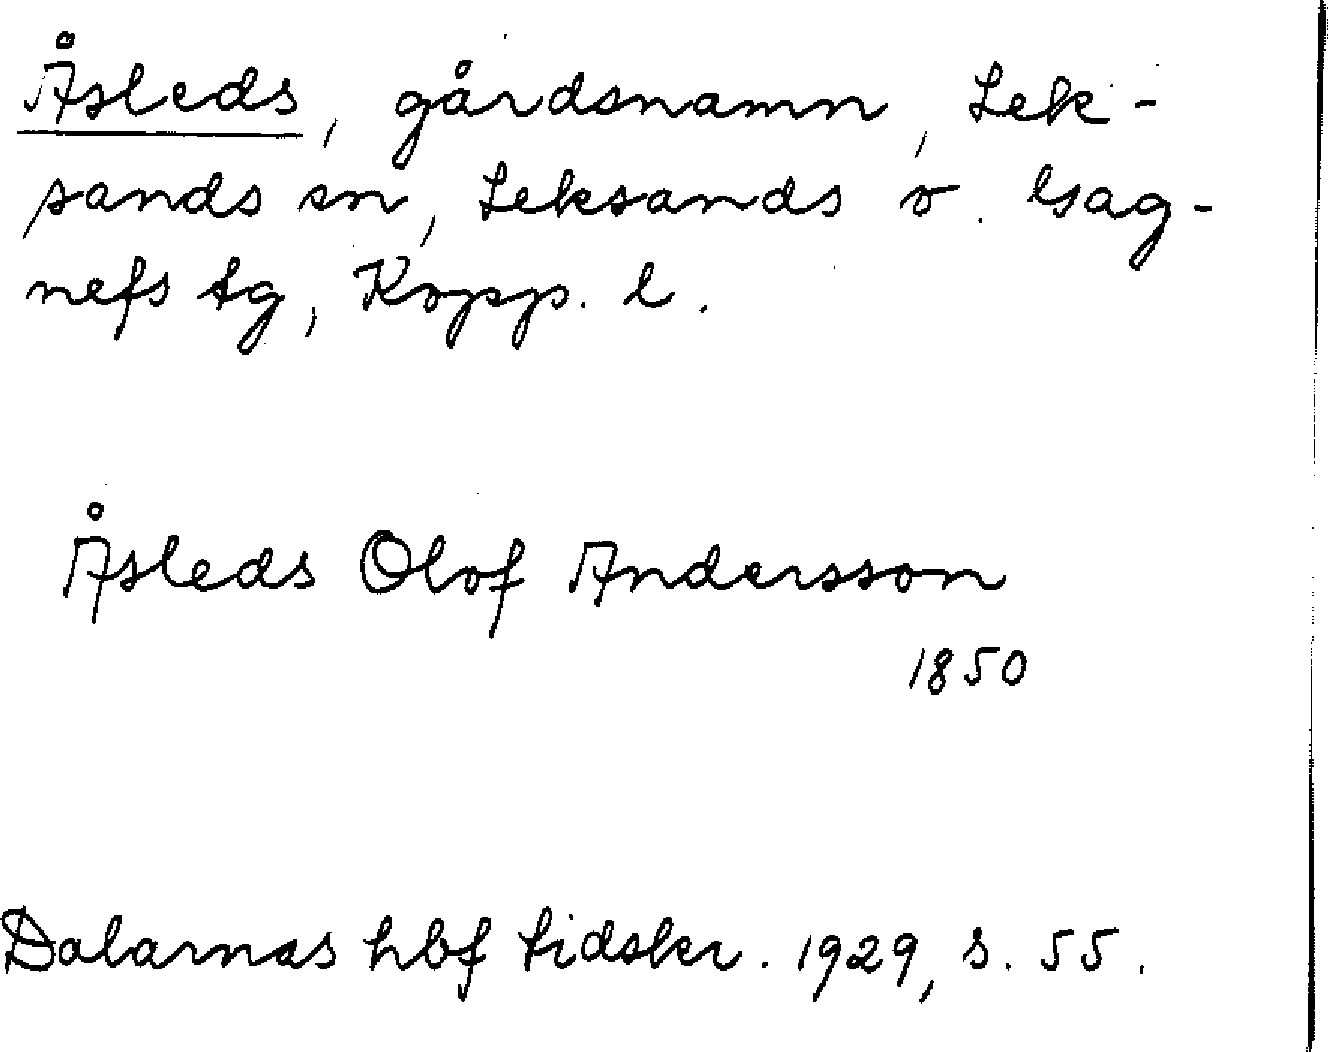 Åsleds, gårdsnamn, Lek-
sands sn, Leksands o. Gag-
nefs tg, Kopp. l.
Åsleds Olof Andersson
1850
Dalarnas hbf tidskr. 1929, s. 55.